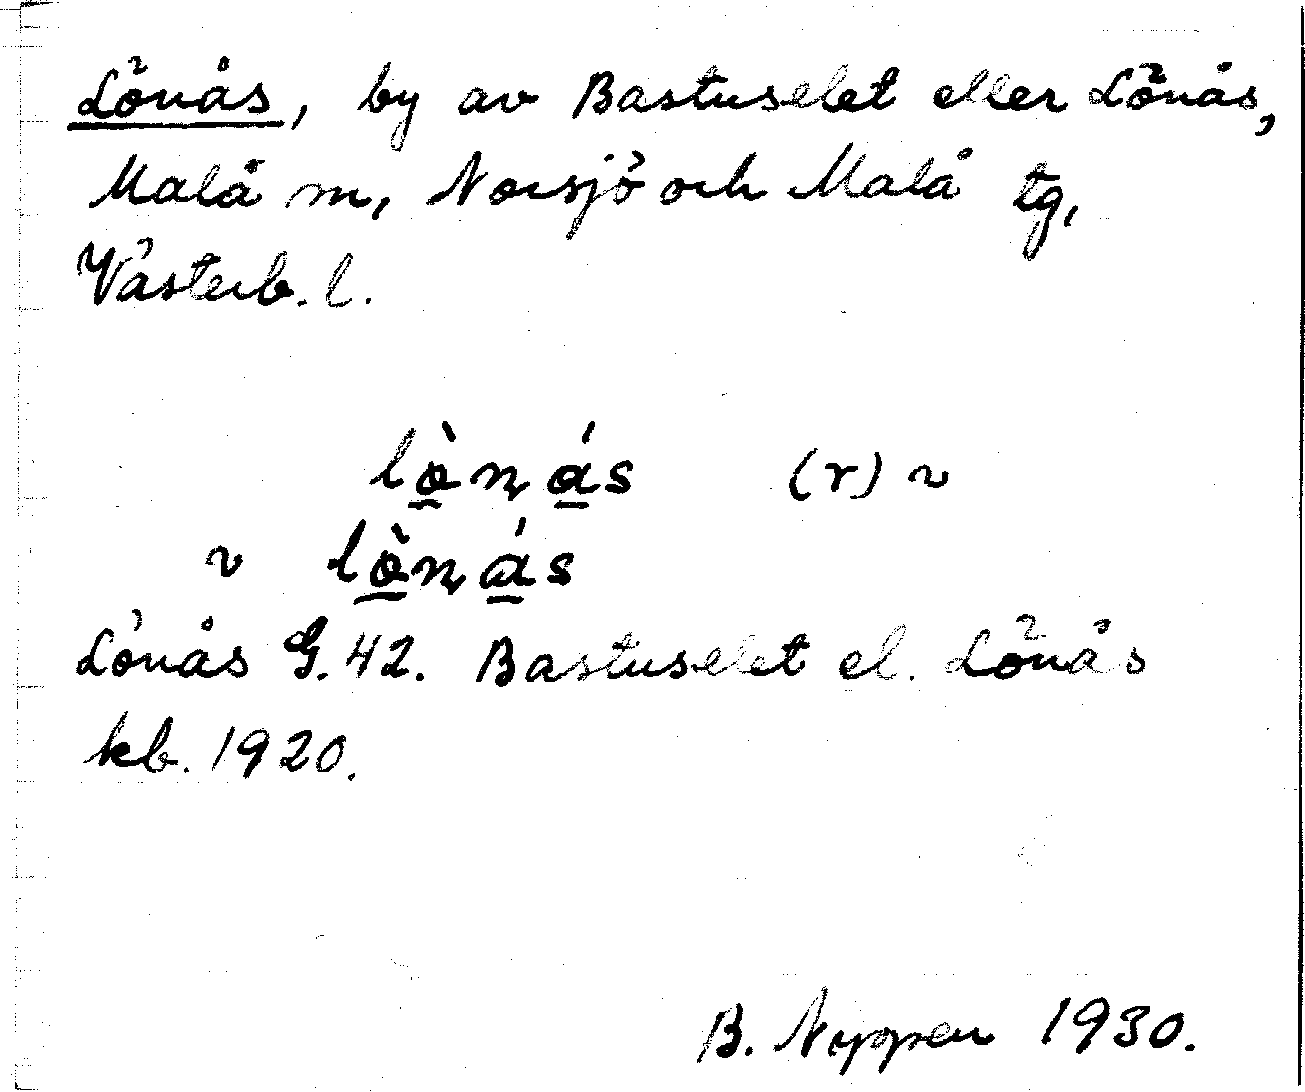 Lönås, by av Bastuselet eller Lönås,
Malå m, Norsjö och Malå tg,
Västerb. l.
lò̱ná̱s (r) ~
~ lò̱ná̱s
Lönås G. 42. Bastuselet el. Lönås
kb. 1920.
B. 1930.